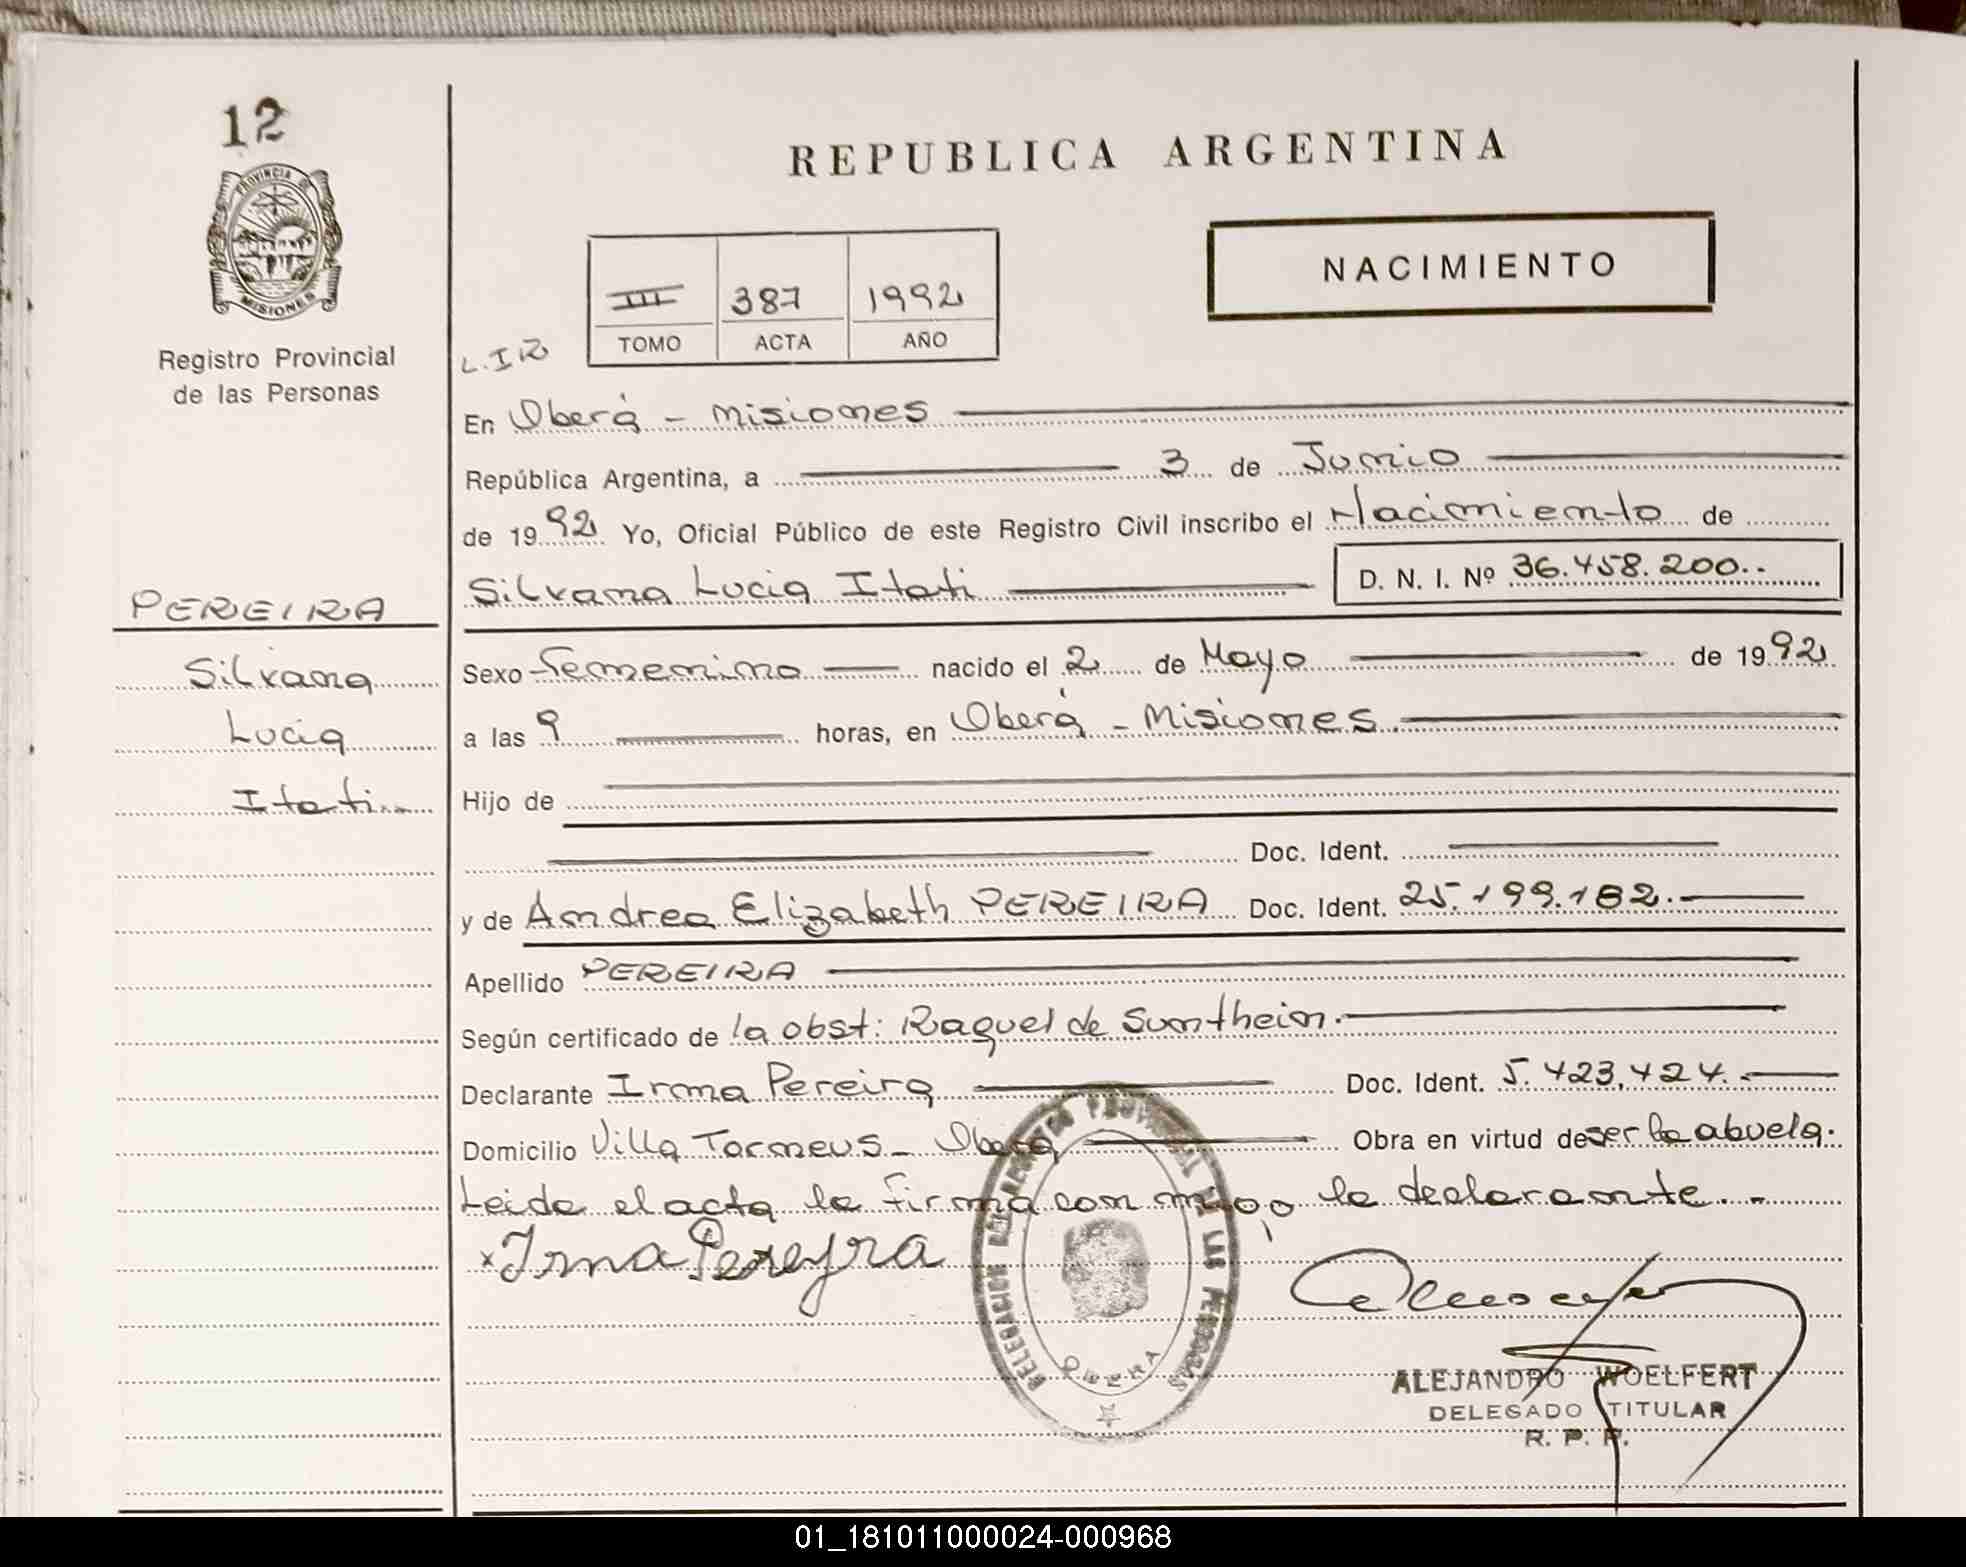 12
PROVINCIA DE
MISIONES
Registro Provincial
de las Personas
PEREIRA
Silvana
Lucia
Itati
REPUBLICA ARGENTINA
NACIMIENTO
III 387 1992
TOMO ACTA AÑO
En Oberá - Misiones
República Argentina, a 3 de Junio
de 1992 Yo, Oficial Público de este Registro Civil inscribo el Nacimiento de
Silvana Lucia Itati D. N. I. Nº 36.458.200..
Sexo Femenino nacido el 2 de Mayo de 1992
a las 9 horas, en Oberá - Misiones.
Hijo de
Doc. Ident.
y de Andrea Elizabeth PEREIRA Doc. Ident. 25.199.182.
Apellido PEREIRA
Según certificado de la obst: Raquel de Suntheim.
Declarante Irma Pereira Doc. Ident. 5.423.424.
Domicilio Villa Torneus - Oberá Obra en virtud de ser la abuela.
Leida el acta la firma con migo, la declarante. -
x Irma Pereyra
DELEGACION DEL REGISTRO PROVINCIAL DE LAS PERSONAS
OBERA
ALEJANDRO WOELFERT
DELEGADO TITULAR
R. P. P.
01_181011000024-000968